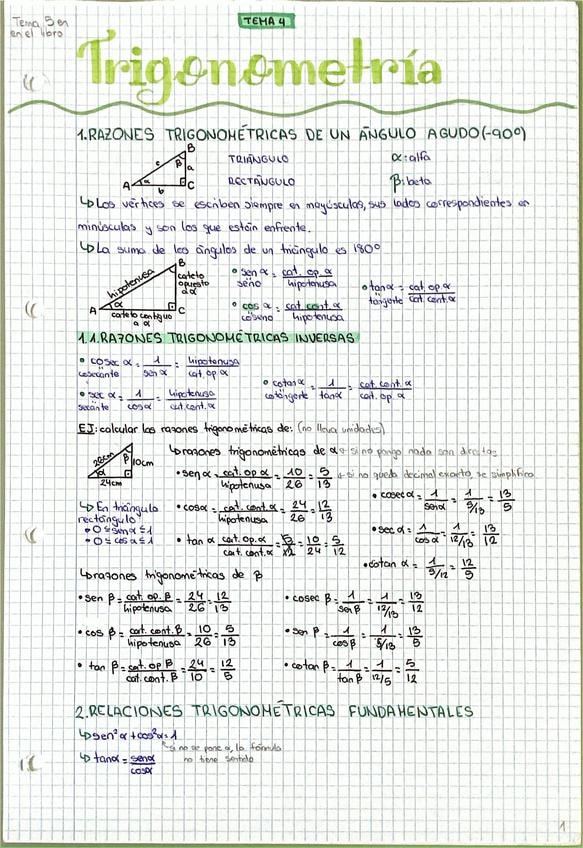 Tema 5 en
en el libro
TEMA 4
Trigonometría
1. RAZONES TRIGONOMÉTRICAS DE UN ÁNGULO AGUDO (-90º)
A B C a b c α β
TRIÁNGULO
RECTÁNGULO
α: alfa
β: beta
↳ Los vértices se escriben siempre en mayúsculas, sus lados correspondientes en
minúsculas y son los que están enfrente.
↳ La suma de los ángulos de un triángulo es 180º
A B C α
hipotenusa
cateto
opuesto
a α
cateto contiguo
a α
• sen α = cat. op. α / hipotenusa
seno
• cos α = cat. cont. α / hipotenusa
coseno
• tan α = cat. op. α / cat. cont. α
tangente
1.1. RAZONES TRIGONOMÉTRICAS INVERSAS
• cosec α = 1 / sen α = hipotenusa / cat. op. α
cosecante
• sec α = 1 / cos α = hipotenusa / cat. cont. α
secante
• cotan α = 1 / tan α = cat. cont. α / cat. op. α
cotangente
EJ: calcular las razones trigonométricas de: (no lleva unidades)
26cm β 10cm
α
24cm
↳ En triángulo
rectángulo
• 0 ≤ sen α ≤ 1
• 0 ≤ cos α ≤ 1
↳ razones trigonométricas de α → si no pongo nada son directas
• sen α = cat. op. α / hipotenusa = 10/26 = 5/13 → si no queda decimal exacto, se simplifica
• cos α = cat. cont. α / hipotenusa = 24/26 = 12/13
• tan α = cat. op. α / cat. cont. α = 10/24 = 5/12
• cosec α = 1 / sen α = 1 / 5/13 = 13/5
• sec α = 1 / cos α = 1 / 12/13 = 13/12
• cotan α = 1 / 5/12 = 12/5
↳ razones trigonométricas de β
• sen β = cat. op. β / hipotenusa = 24/26 = 12/13
• cos β = cat. cont. β / hipotenusa = 10/26 = 5/13
• tan β = cat. op. β / cat. cont. β = 24/10 = 12/5
• cosec β = 1 / sen β = 1 / 12/13 = 13/12
• sen β = 1 / cos β = 1 / 5/13 = 13/5
• cotan β = 1 / tan β = 1 / 12/5 = 5/12
2. RELACIONES TRIGONOMÉTRICAS FUNDAMENTALES
↳ sen² α + cos² α = 1
si no se pone α, la fórmula
no tiene sentido
↳ tan α = sen α / cos α
1